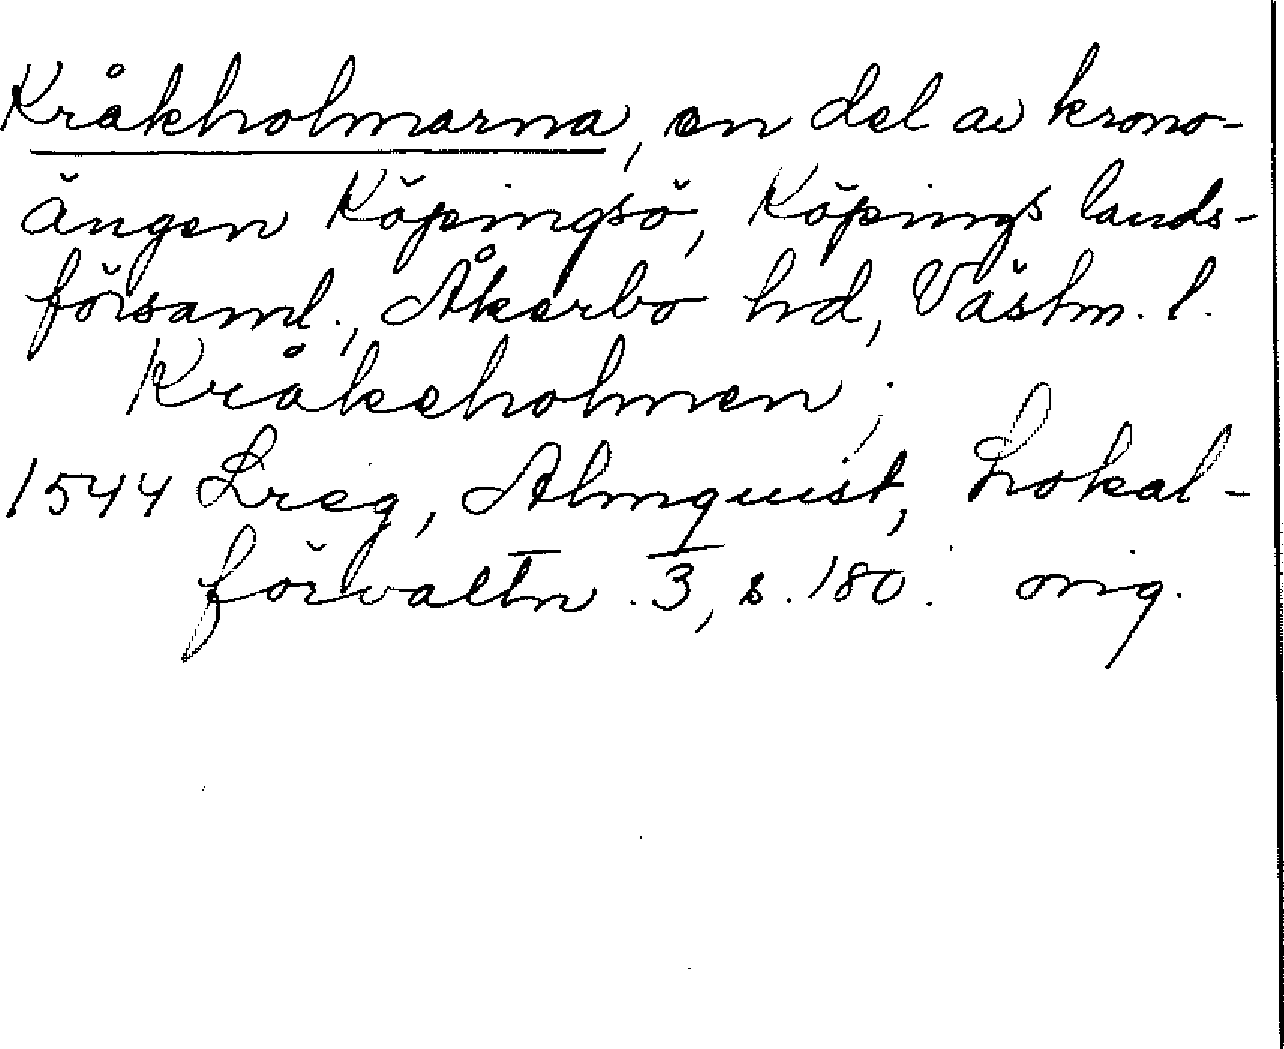 Kråkholmarna, en del av krono-
ängen Köpingsö, Köpings lands-
församl., Åkerbo hd, Västm. l.
Kråkeholmen;
1544 Lreg, Almquist, Lokal-
förvaltn. 3, s. 180. orig.